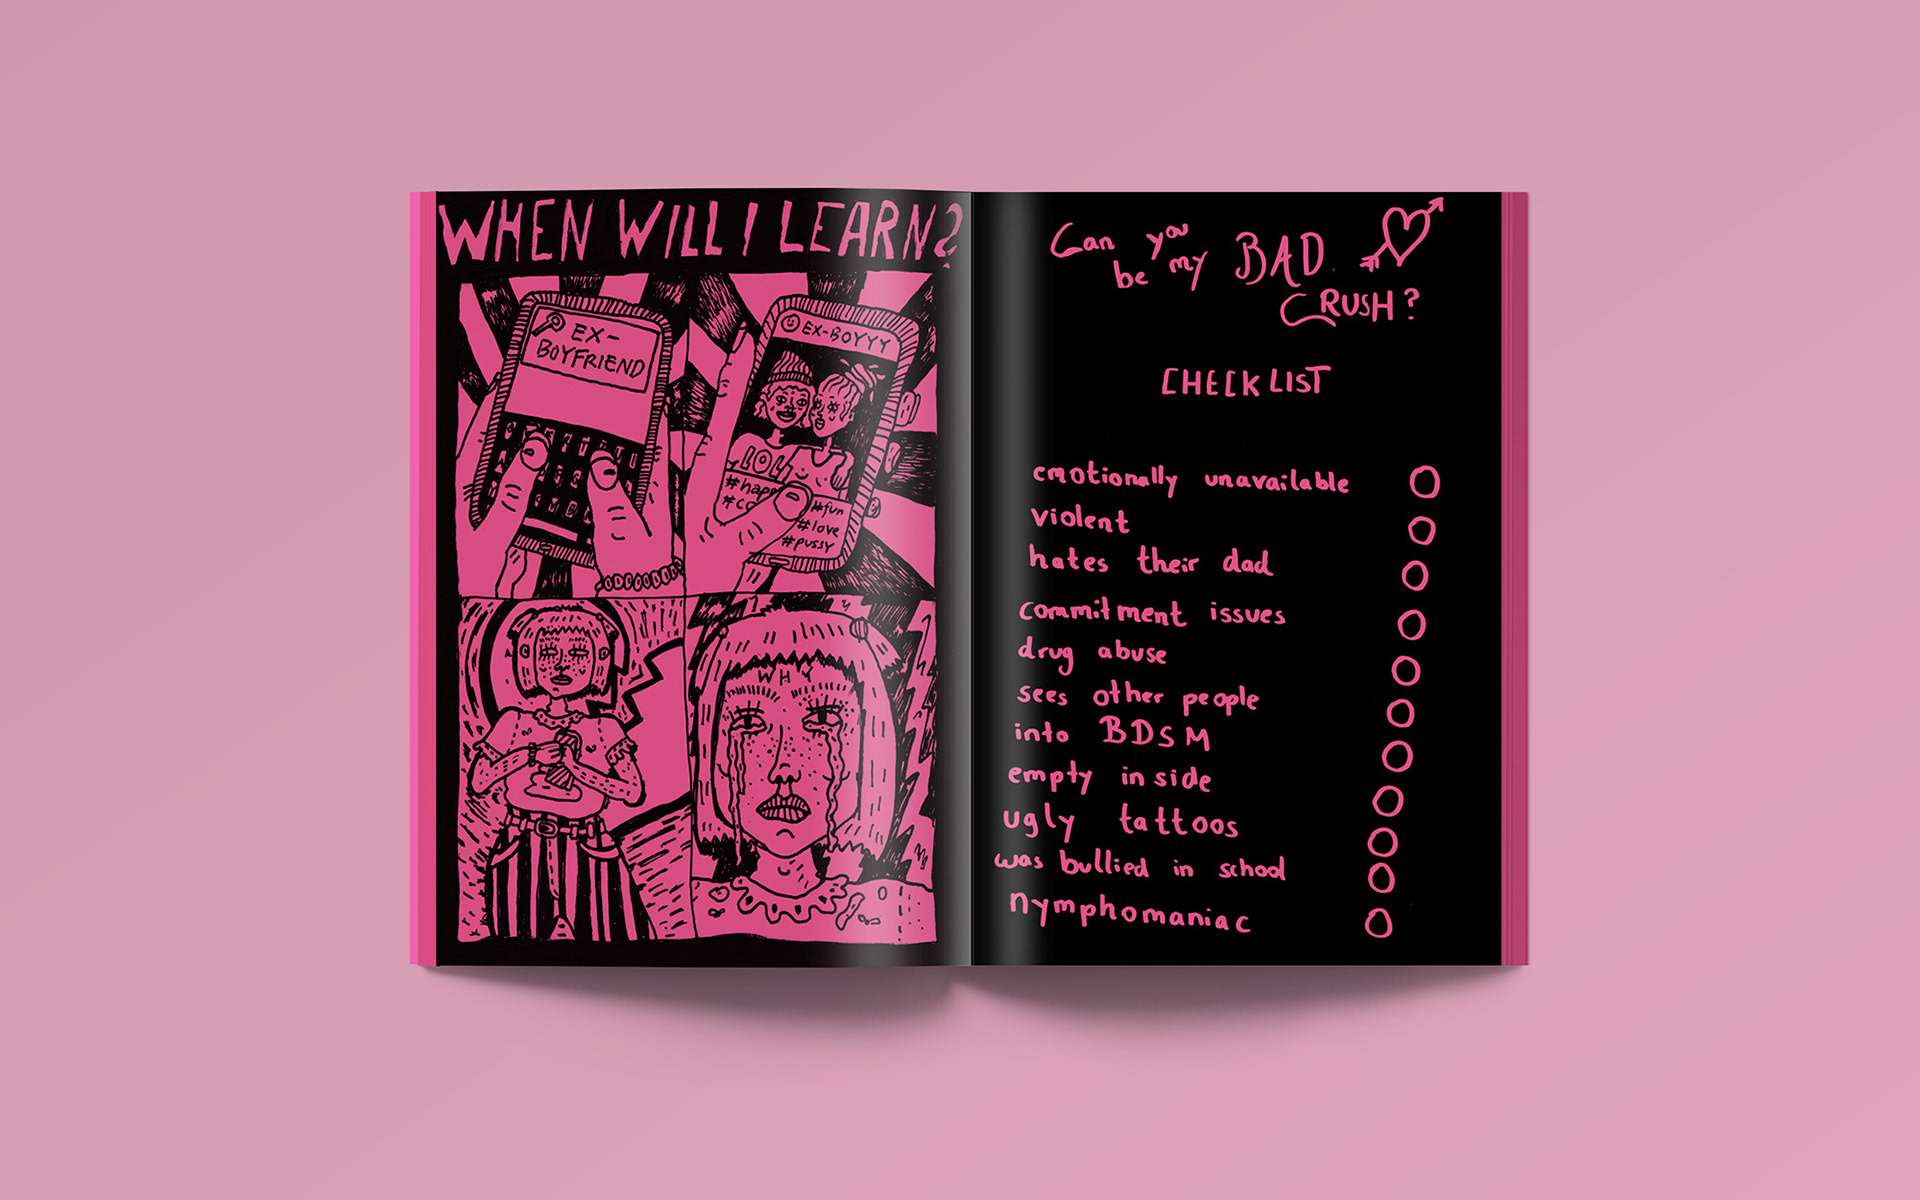 WHEN WILL I LEARN?
EX-
BOYFRIEND
EX-BOYYY
LOL
#happ
#co
#fun
#love
#pussy
WHY
Can you
be my BAD
CRUSH?
CHECKLIST
emotionally unavailable
violent
hates their dad
commitment issues
drug abuse
sees other people
into BDSM
empty inside
ugly tattoos
was bullied in school
nymphomaniac